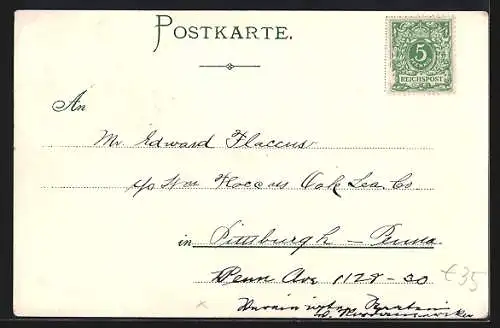 POSTKARTE.
5
REICHSPOST
An
Mr Edward Flaccus
c/o Wm Floccus Oak Lea. Co
in Pittsburgh – Penna
Penn Ave 1128–30
€35